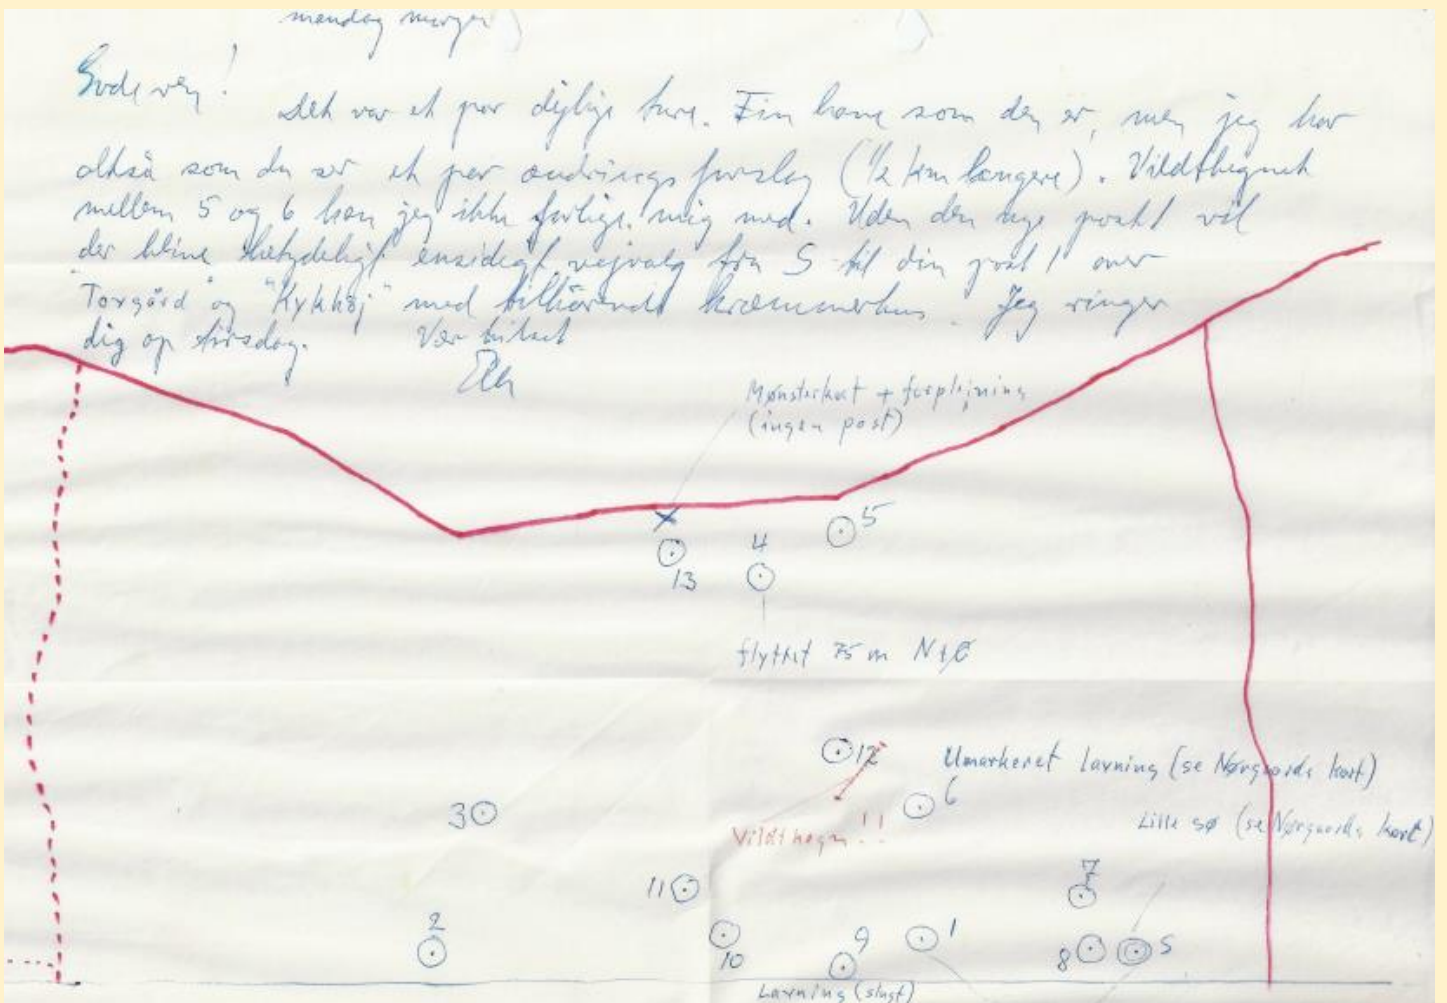 mandag morgen)
Gode ven!
Det var et par dejlige ture. Fin bane som den er, men jeg har
altså som du ser et par ændringsforslag (1/2 km længere). Vildthegnet
mellem 5 og 6 kan jeg ikke forlige mig med. Uden den nye post 1 vil
der blive betydeligt ensidigt vejvalg fra S til din post 1 over
"Torgård" og "Kykhøj" med tilhørende kræmmerhus. Jeg ringer
dig op tirsdag. Vær hilset
Mønsterkort + forplejning
(ingen post)
5
4
13
flyttet 75 m N t Ø
12
Umarkeret lavning (se Nørgaards kort)
6
3
Lille sø (se Nørgaards kort)
Vildthegn!!
7
11
2
9
1
10
8
S
Lavning (slugt)